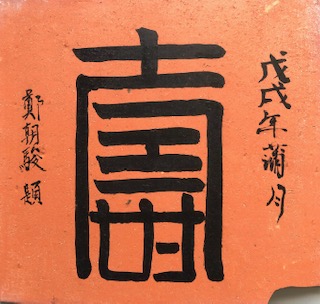 戊戌年蒲月
壽
鄭朝駿題